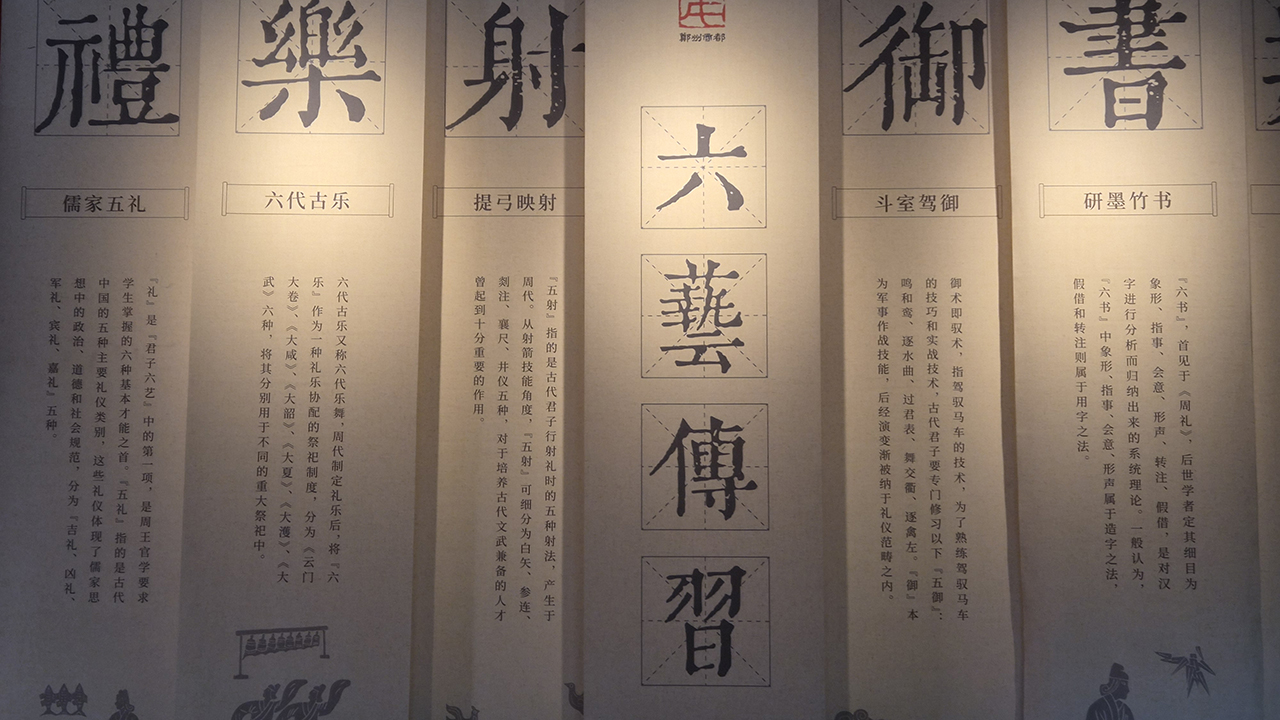 禮
儒家五礼
『礼』是『君子六艺』中的第一项，是周王官学要求
学生掌握的六种基本才能之首。『五礼』指的是古代
中国的五种主要礼仪类别，这些礼仪体现了儒家思
想中的政治、道德和社会规范，分为『吉礼、凶礼、
军礼、宾礼、嘉礼』五种。
樂
六代古乐
六代古乐又称六代乐舞，周代制定礼乐后，将『六
乐』作为一种礼乐协配的祭祀制度，分为《云门
大卷》、《大咸》、《大韶》、《大夏》、《大濩》、《大
武》六种，将其分别用于不同的重大祭祀中。
射
提弓映射
『五射』指的是古代君子行射礼时的五种射法，产生于
周代。从射箭技能角度，『五射』可细分为白矢、参连、
剡注、襄尺、井仪五种，对于培养古代文武兼备的人才
曾起到十分重要的作用。
鄭州商都
六
藝
傳
習
御
斗室驾御
御术即驭术，指驾驭马车的技术，为了熟练驾驭马车
的技巧和实战技术，古代君子要专门修习以下『五御』：
鸣和鸾、逐水曲、过君表、舞交衢、逐禽左。『御』本
为军事作战技能，后经演变渐被纳于礼仪范畴之内。
書
研墨竹书
『六书』，首见于《周礼》，后世学者定其细目为
象形、指事、会意、形声、转注、假借，是对汉
字进行分析而归纳出来的系统理论。一般认为，
『六书』中象形、指事、会意、形声属于造字之法，
假借和转注则属于用字之法。